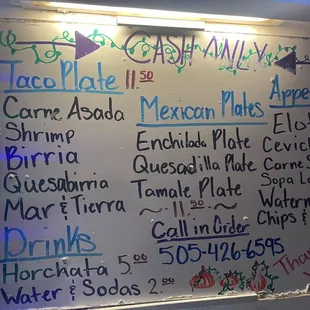 CASH ONLY
Taco Plate 11.50
Carne Asada
Shrimp
Birria
Quesabirria
Mar & Tierra
Drinks
Horchata 5.00
Water & Sodas 2.00
Mexican Plates
Enchilada Plate
Quesadilla Plate
Tamale Plate
~ 11.50 ~
Call in Order
505-426-6595
Appe
Elot
Cevich
Carne
Sopa
Waterm
Chips &
Than